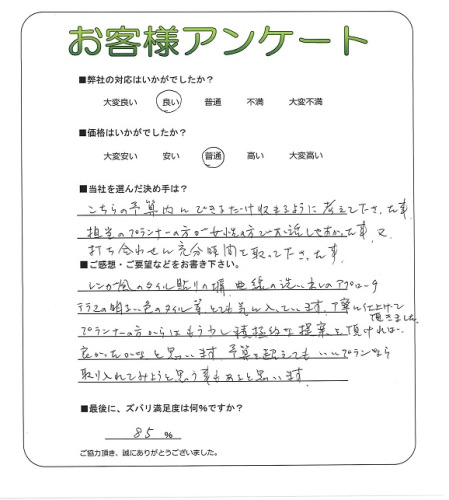 お客様アンケート
■弊社の対応はいかがでしたか？
大変良い 良い 普通 不満 大変不満
■価格はいかがでしたか？
大変安い 安い 普通 高い 大変高い
■当社を選んだ決め手は？
こちらの予算内にできるだけ収まるように考えて下さった事
担当のプランナーの方が女性の方でお話しやすかった事、又
打ち合わせに充分時間を取って下さった事。
■ご感想・ご要望などをお書き下さい。
レンガ風のタイル貼りの塀、曲線の洗い出しのアプローチ
テラスの明るい色のタイル等とても気に入っています。丁寧に仕上げて
頂きました。
プランナーの方からはもう少し積極的な提案を頂ければ
良かったかなと思います。予算を超えても いいプランなら
取り入れてみようと思う事もあると思います。
■最後に、ズバリ満足度は何％ですか？
85 ％
ご協力頂き、誠にありがとうございました。